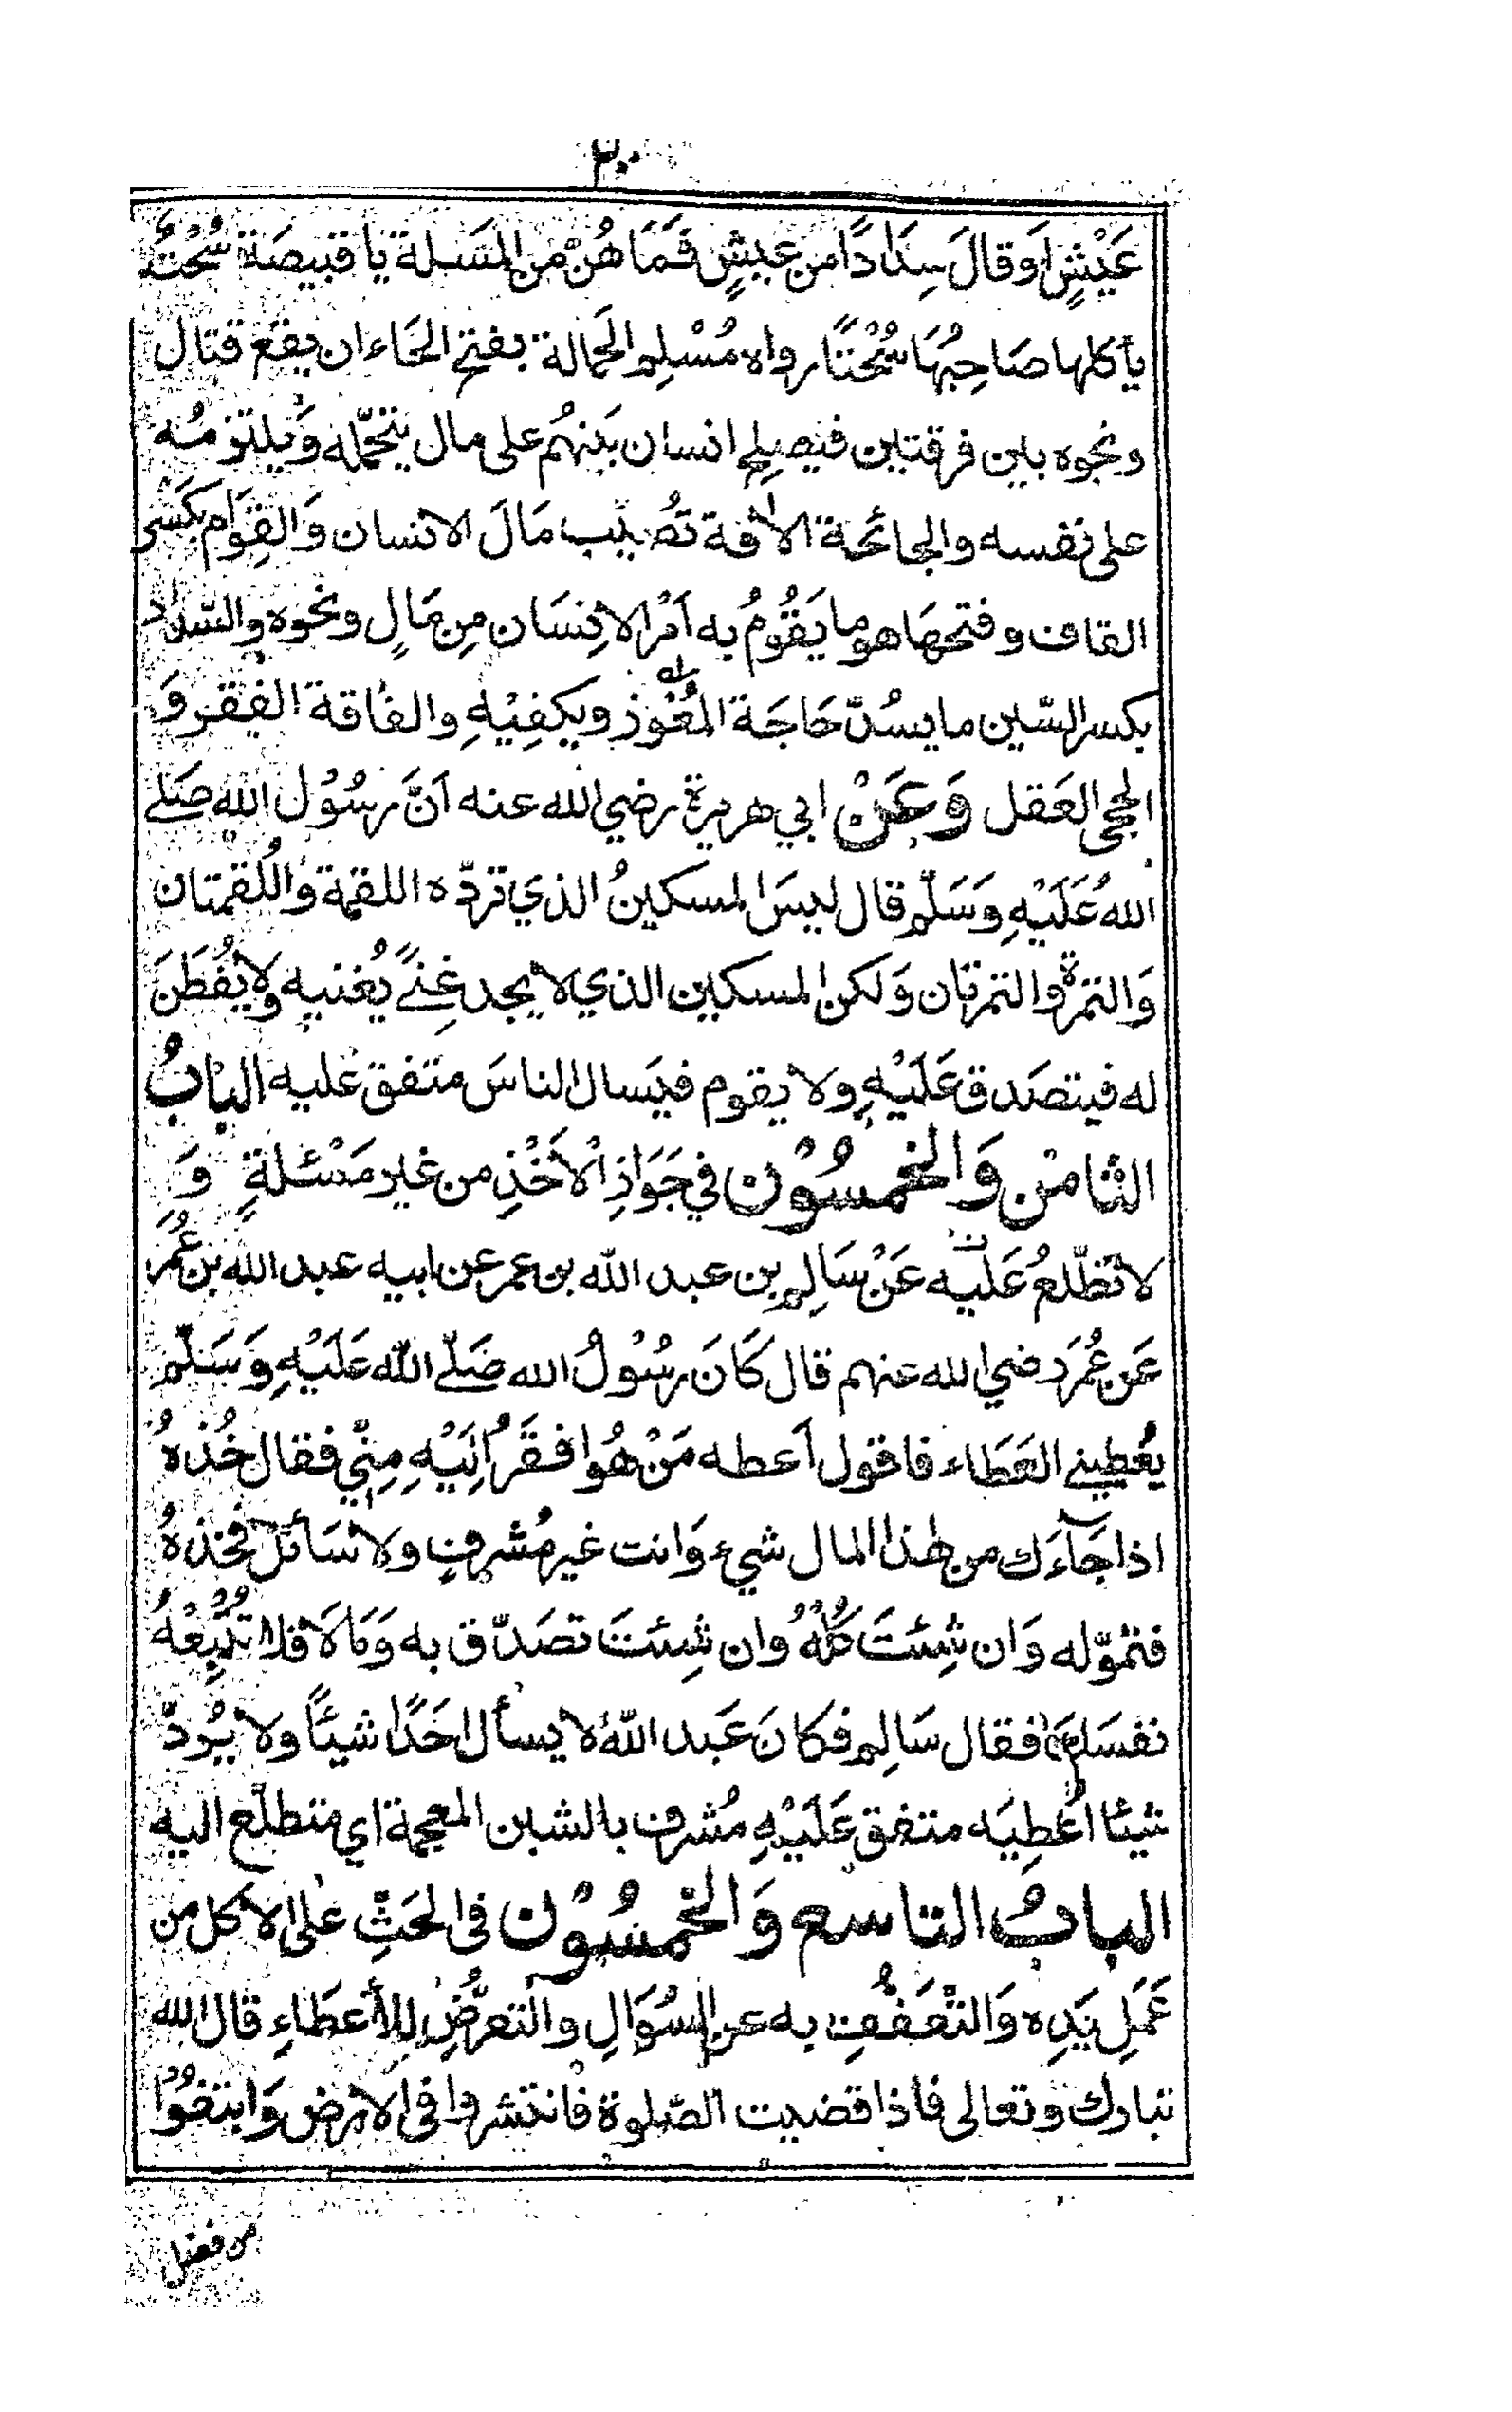 ٣٠٠
عَيْشٍ اَوقالَ سِدَادًا من عيشٍ فَمَا هُنّ من المسَلة يا قبيصَة سُحْتٌ
يأكلها صَاحِبُهَا سُحْتًا رواه مُسْلِم الحَمالة بفتح الحَاء ان يقعَ قتال
ونحوه بين فرقتين فيصلح انسان بَينهُم على مال يتحمّله وَيلتزمُه
على نفسه والجائحة الاٰفة تصُيْب مَالَ الانسان وَالقِوَام بكَسر
القاف وفتحهَا هو ما يَقُومُ به اَمْر الاِنسَان مِن مَالٍ ونحوه والسّداد
بكسر السّين ما يسُدّ حَاجَة المُعْوِز ويكفِيْهِ والفاقة الفقر وَ
الحجى العَقل وَعَنْ ابي هريرة رضي الله عنه اَنَّ رسُوْل الله صَلے
اللهُ عَلَيْهِ وَسَلّم قال ليسَ المسكينُ الذي تردّه اللقمة وَاللُقمتان
وَالتمرة والتمرتان وَلكن المسكين الذي لا يجد غِنًے يُغنيه ولا يُفطَنَ
له فيتصَدق عَلَيْهِ ولا يقوم فيَسال الناسَ متفق عليه البَابُ
الثامن وَالخمسُوْن في جَوَازِ الْاَخْذِ من غير مَسْئلةٍ وَ
لا تطّلعُ عَليْه عَنْ سَالِم بن عبد الله بن عمر عن ابيه عبد الله بن عُمَر
عَن عُمَرَ رضي الله عنهم قال كَانَ رسُوْلُ الله صَلّے الله عَلَيْهِ وَسَلّم
يُعْطِيني العَطَاء فاقول اَعطه مَنْ هُو افقَرُ اِلَيْهِ مِنِّي فقال خُذهُ
اذا جَآءَك من هٰذا المال شيء وَانت غير مُشرفٍ ولا سَائل فخذهُ
فتموّله وَان شِئتَ كُلْهُ وان شِئتَ تصَدّق به وَمَا لَا فلا تُتْبِعْهُ
نفسَك فقال سَالِم فكانَ عَبد اللهُ لا يسأل اَحَدًا شيئًا ولا يَرُدّ
شيئا اُعْطِيَه متفق عَلَيْهِ مُشرف بالشين المعجمة اي متطلّع اليه
البابُ التاسع وَالخمسُوْن في الحَثِ على الاَكل من
عَمَلِ يَدِه وَالتّعَفّفِ به عن السُوَالِ والتعرُّضِ للأعطَاءِ قال الله
تبارك وتعالى فاذا قضيت الصّلوة فانتشروا في الارض وَابتغُوْا
من فضل